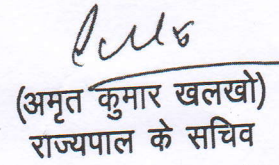 (अमृत कुमार खलखो)
राज्यपाल के सचिव